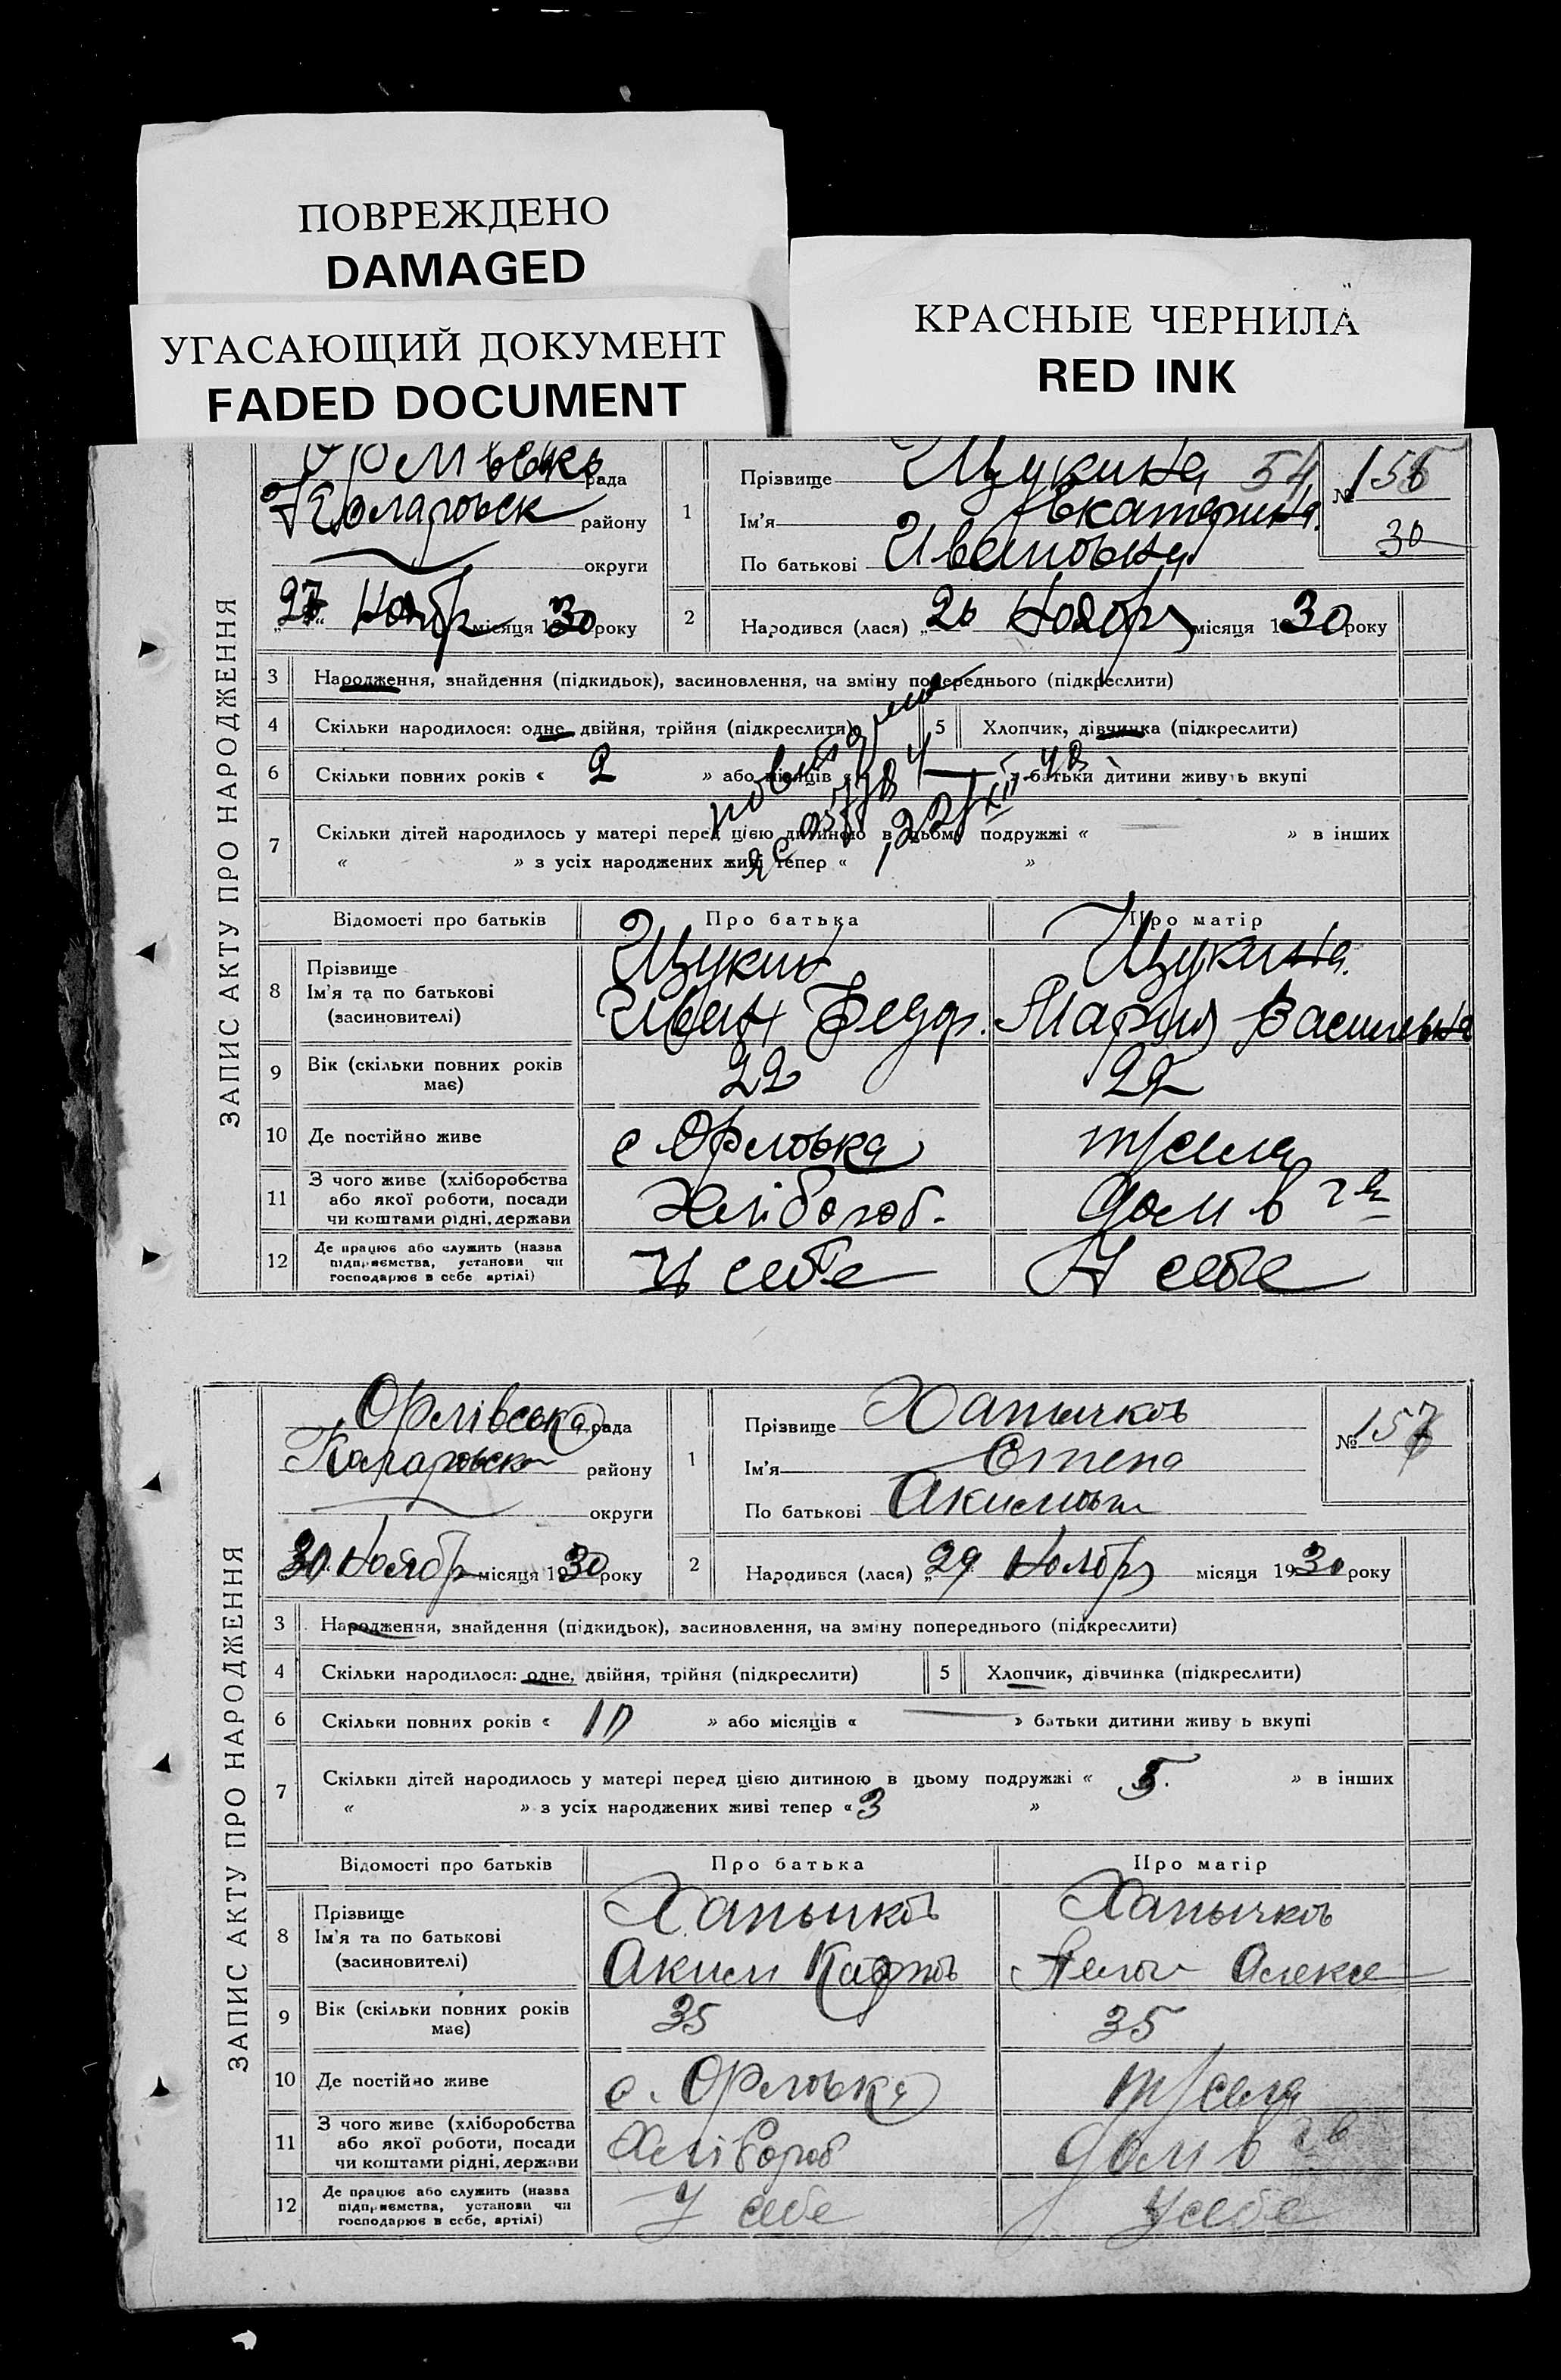 ПОВРЕЖДЕНО
DAMAGED
УГАСАЮЩИЙ ДОКУМЕНТ
FADED DOCUMENT
КРАСНЫЕ ЧЕРНИЛА
RED INK
ЗАПИС АКТУ ПРО НАРОДЖЕННЯ
рада
району
округи
27 Ноябр місяця 1930 року
1
Прізвище Щукина 54
Ім'я Екатерина
По батькові Ивановна
№ 156
30
2
Народився (лася) „ 26 Ноября місяця 1930 року
3 Народження, знайдення (підкидьок), засиновлення, на зміну попереднього (підкреслити)
4 Скільки народилося: одне, двійня, трійня (підкреслити)
5 Хлопчик, дівчинка (підкреслити)
6 Скільки повних років « 2 » або місяців « — » батьки дитини живуть вкупі
7 Скільки дітей народилось у матері перед цією дитиною в цьому подружжі « — » в інших
« » з усіх народжених живі тепер « »
Відомості про батьків Про батька Про матір
8 Прізвище
Ім'я та по батькові
(засиновителі)
Щукин
Иван Федор.
Щукина
Мария Васильевна
9 Вік (скільки повних років має) 22 22
10 Де постійно живе с Орловка т/села
11 З чого живе (хліборобства або якої роботи, посади чи коштами рідні, держави Хлібороб. дом в г-ве
12 Де працює або служить (назва підприємства, установи чи господарює в себе, артілі) У себе У себе
ЗАПИС АКТУ ПРО НАРОДЖЕННЯ
Орлівська рада
Коларовськ району
округи
30 Ноябр місяця 1930 року
1
Прізвище Хапычков
Ім'я
По батькові Акимов
№ 157
2
Народився (лася) „ 29 Ноябр місяця 1930 року
3 Народження, знайдення (підкидьок), засиновлення, на зміну попереднього (підкреслити)
4 Скільки народилося: одне, двійня, трійня (підкреслити)
5 Хлопчик, дівчинка (підкреслити)
6 Скільки повних років « 10 » або місяців « — » батьки дитини живу ь вкупі
7 Скільки дітей народилось у матері перед цією дитиною в цьому подружжі « 5. » в інших
« » з усіх народжених живі тепер « 3 »
Відомості про батьків Про батька Про матір
8 Прізвище
Ім'я та по батькові
(засиновителі)
Хапычков
Аким Карпов
Хапычков
Алексе
9 Вік (скільки повних років має) 35 35
10 Де постійно живе с. Орловка т/села
11 З чого живе (хліборобства або якої роботи, посади чи коштами рідні, держави Хлібороб дом в гв
12 Де працює або служить (назва підприємства, установи чи господарює в себе, артілі) У себе У себе